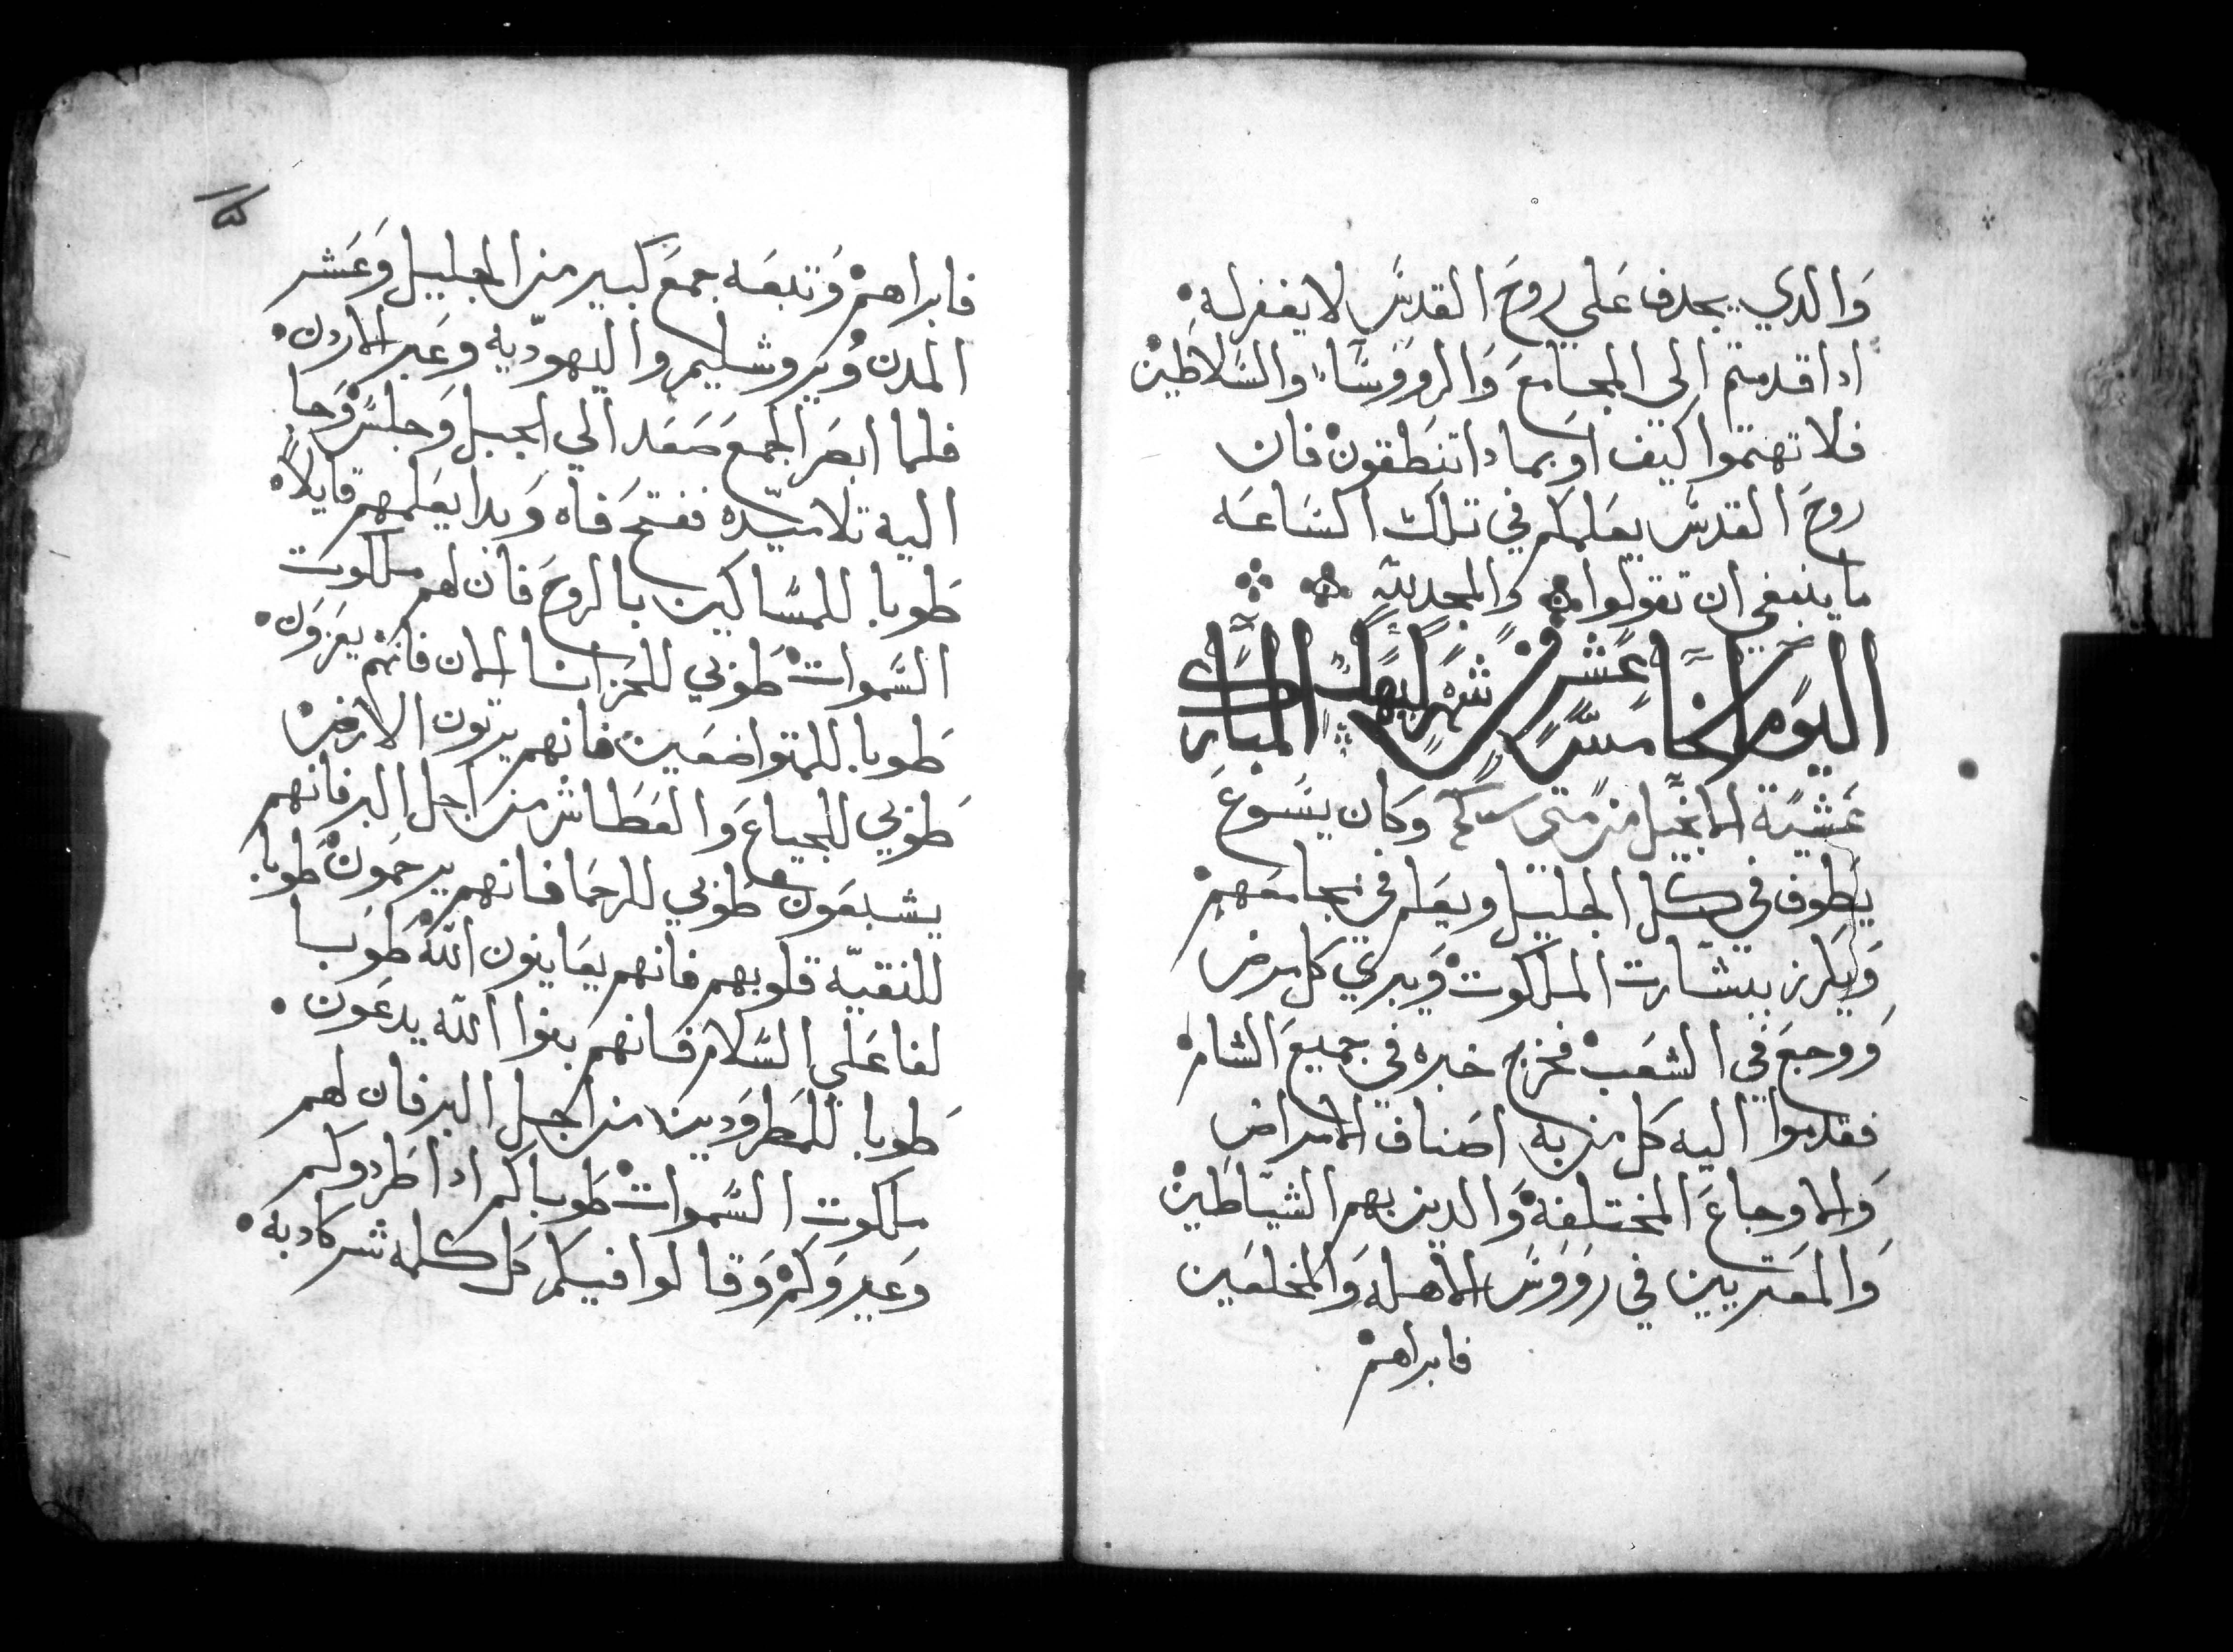 والدي يجدف علي روح القدس لا يغفر له
ادا قدمتم الي المجامع والرووسا والسلاطين
فلا تهتموا كيف او بمادا تنطقون فان
روح القدس يعلمكم في تلك الساعه
ما ينبغي ان تقولوا والمجد لله
اليوم الخامس عشر من شهر كيهك المبارك
عشية الانجيل من متى وكان يسوع
يطوف في كل الجليل ويعلم في مجامعهم
ويكرز ببشارت الملكوت ويبري كل مرض
ووجع في الشعب فخرج خبره في جميع الشام
فقدموا اليه كل من به اصناف الامراض
والاوجاع المختلفة والدين بهم الشياطين
والمعتريين في رووس الاهله والمخلعين
فابراهم
فابراهم وتبعه جمع كبير من الجليل وعشر
المدن ويروشليم واليهوديه وعبر الاردن
فلما ابصر الجمع صعد الي الجبل وجلس وجا
اليه تلاميده ففتح فاه وبدا يعلمهم قايلا
طوبا للمساكين بالروح فان لهم ملكوت
السموات طوبي للحزانا الان فانهم يعزون
طوبا للمتواضعين فانهم يرتون الارض
طوبي للجياع والعطاش من اجل البر فانهم
يشبعون طوبي للرحما فانهم يرحمون طوبا
للنقيه قلوبهم فانهم يعاينون الله طوبا
لفاعلي السلام فانهم بنوا الله يدعون
طوبا للمطرودين من اجل البر فان لهم
ملكوت السموات طوباكم ادا طردوكم
وعيروكم وقالوا فيكم كل كلمه شر كادبه